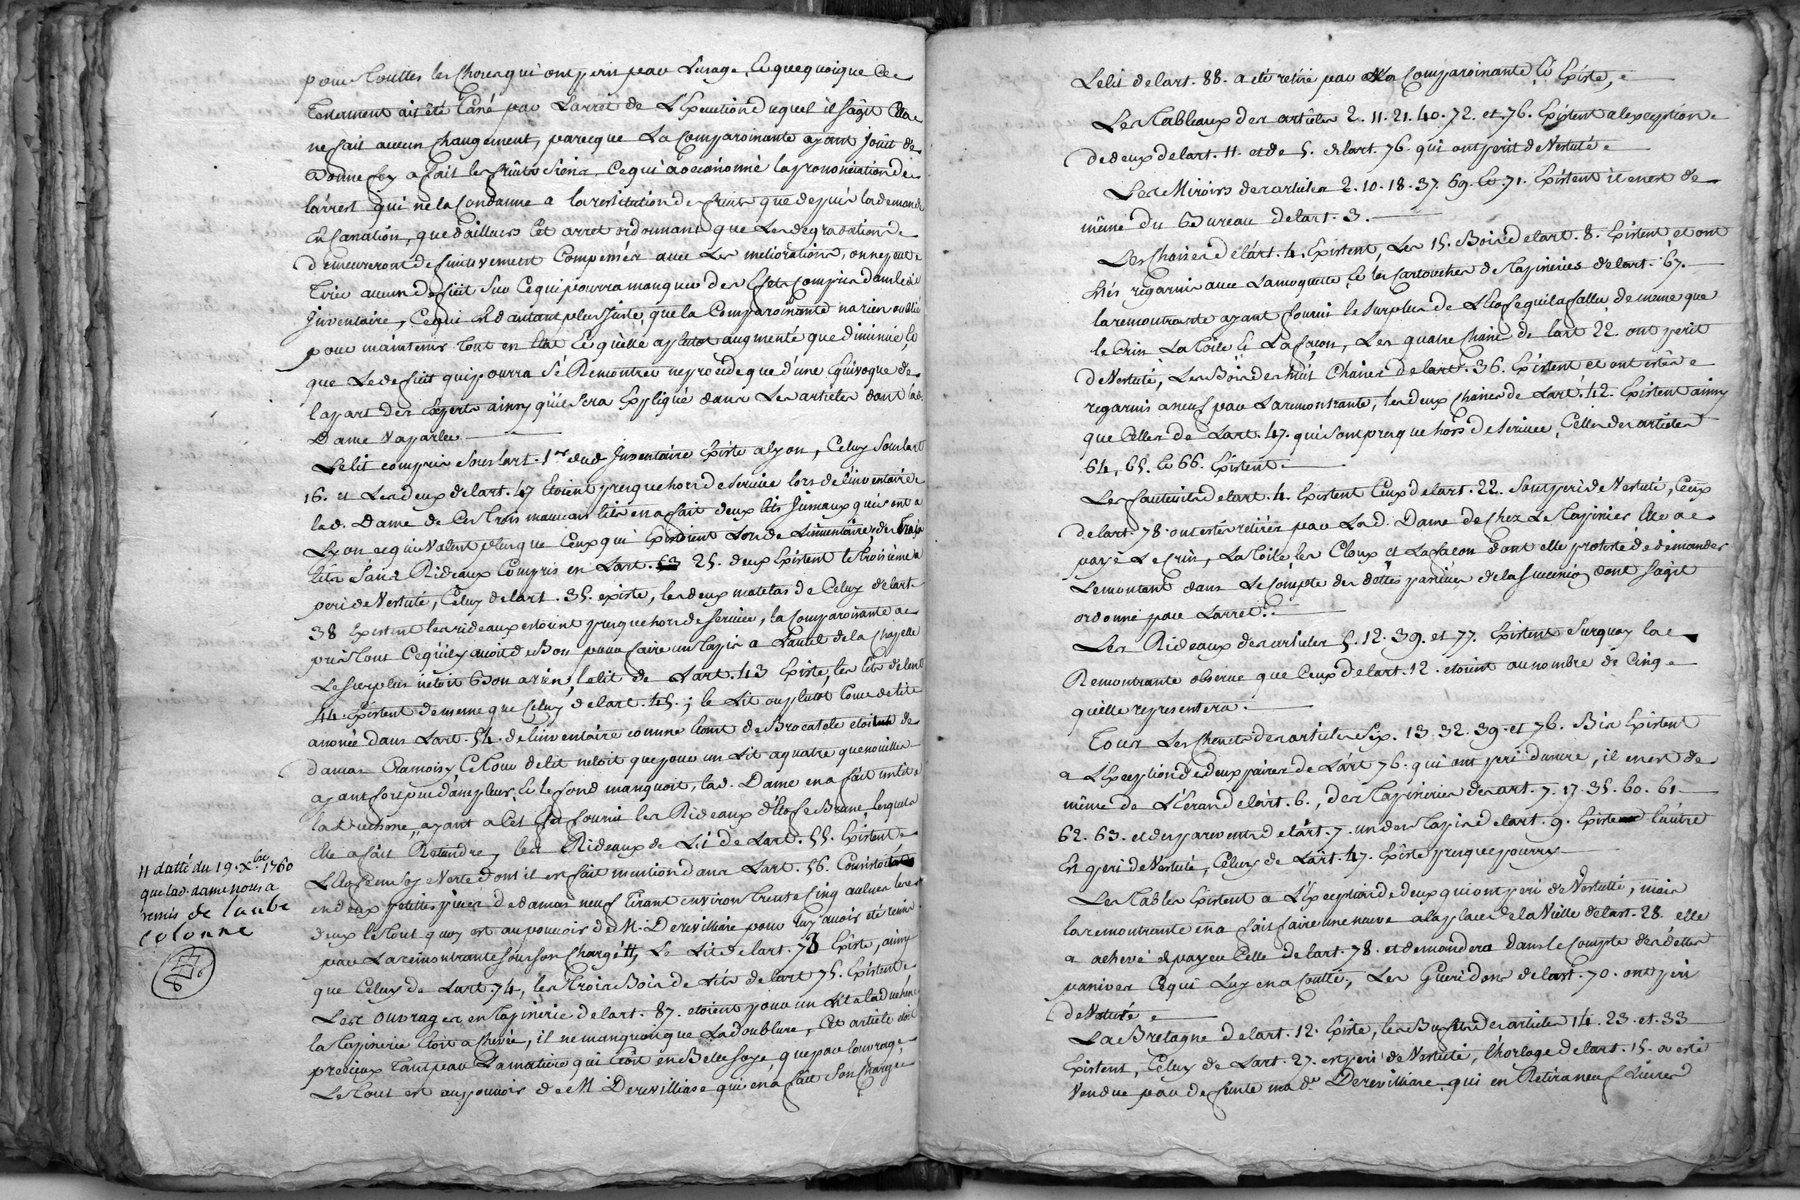 pour Touttes les Choses qui ont peri par L'usage, Et que quoique Ce
Testament ait été Cassé par L'arret de L'Execution duquel il s'agit Cela
ne fait aucun Changement, parce que La Comparoinante ayant Jouit de
Bonne foy a fait les fruits Siens, Ce qui a occasionné la prononciation de
l'arrest qui ne la Condamne a la restitution des fruits que depuis la demande
En Cassation, que d'ailleurs Cet arret ordonnant que Les degradations
demeureront definitivement Compensées avec Les meliorations, on ne peut
Tirer aucun deficit Sur Ce qui pourra manquer des Effets Compris dans led.
Inventaire, Ce qui Est d'autant plus Juste, que la Comparoinante n'a rien oublié
pour maintenir Tout en Etat Et qu'elle a plutot augmenté que diminué, Et
que Le deficit qui pourra Se Remontrer ne procede que d'une Equivoque de
la part des Experts ainsy qu'il Sera Expliqué dans Les articles dont lad.
Dame Va parler.
Le lit compris Sous l'art. 1er dud. Inventaire Existe a Lyon, Celuy Sous l'art
16. et Les deux de l'art. 47 Etoient presque hors de Service lors de l'inventaire
lad. Dame de Ces Trois mauvais lits en a fait deux lits Jumaux qui sont a
Lyon et qui Valent plus que Ceux qui Existoient Lors de L'inventaire, des Trois
lits Sans Rideaux Compris en L'art. 25. deux Existent le Troisieme a
peri de Vestuté, Celuy de l'art. 35. existe, les deux matelas de Celuy de l'art.
38 Existent les rideaux estoint presque hors de Service, la Comparoinante a
pris Tout Ce qu'il y avoit de Bon pour faire un Tapis a l'autel de la Chapelle
Le Surplus n'etoit Bon a rien, le lit de L'art. 43 Existe, les lits de l'art
44 Existent de meme que Celuy de l'art. 45. ; le Lit ou plutot Tour de lit
anoncé dans L'art. 54. de l'inventaire comme Etant de Brocatele etoit de
damas Cramoisy, Ce Tour de lit n'etoit que pour un Lit a quatre quenouilles
ayant fort peu d'ampleur, Et le fond manquoit, lad. Dame en a fait un lit a
la duchesse, ayant a Cet Effet fourni les Rideaux d'Etofe Brune, lesquels
Elle a fait Reteindre, les Rideaux de Lit de L'art. 55. Existent.
L'Etofe en Soy Verte dont il est fait mention dans L'art. 56. Consiste
en deux petittes pieces de damas neuf tirant environ Trente Cinq aulnes les
deux le Tout quoy est au pouvoir de M. Derevilliase pour luy avoir été remis
par La remontrante Sous son Chargé //, Le Lit de l'art. 73 Existe, ainsy
que Celuy de L'art. 74, les Trois Bois de Lits de l'art 75. Existent
Les Ouvrages en Tapisserie de l'art. 87. etoient pour un Lit a la duchesse
la Tapisserie Etoit achevée, il ne manquoit que La doublure, Cet article etoit
precieux Tant par La matiere qui Etoit en Belle soye, que par l'ouvrage,
Le Tout est au pouvoir de M. Derevilliase qui en a fait Son Chargé
// datté du 19. Xbre 1760
que lad. dame nous a
remis de l'autre
Colonne
Le lit de l'art. 88. a été retiré par la Comparoinante Et Existe,
Les Tableaux des articles 2. 11. 21. 40. 72. et 76. Existent a l'exception
de deux de l'art. 11. et de 5. de l'art. 76. qui ont perit de Vestuté
Les Miroirs des articles 2. 10. 18. 37. 69. Et 71. Existent il en est de
même du Bureau de l'art. 3.
Les Chaises de l'art. 4. Existent, Les 15. Bois de l'art. 8. Existent et ont
étés regarnis avec La moquette, Et les Cartouches de Tapisseries de l'art. 67.
la remontrante ayant fourni le Surplus de L'Etofe qu'il a fallu de meme que
le Crin La Toile Et La façon, Les quatre Chaise de l'art 22. ont perit
de Vestuté, Les Bois des huit Chaises de l'art. 36. Existent et ont estés
regarnis a neuf par La remontrante, les deux Chaises de L'art. 42. Existent ainsy
que Celles de L'art. 47. qui sont presque hors de Service, Celles des articles
64, 65. Et 66. Existent.
Les fauteuils de l'art. 4. Existent Ceux de l'art. 22. Sont peri de Vestuté, Ceux
de l'art. 78. ont estés retirés par Lad. Dame de Chez Le Tapissier Elle a
payé Le Crin, La Toile les Cloux et La façon dont elle proteste de demander
Le montant dans Le Compte des dettes passives de la Succession dont s'agit
ordonné par L'arret.
Les Rideaux des articles 5. 12. 39. et 77. Existent Surquoy la
Remontrante observe que Ceux de l'art. 12. etoient au nombre de Cinq
qu'elle representera.
Tous Les Chenets des articles Six. 13. 32. 39. et 76. Bis Existent
a L'Exception de deux paires de L'art 76. qui ont peri d'usure, il en est de
même de L'Ecran de l'art. 6., des Tapisseries des art. 7. 17. 35. 60. 61.
62. 63. et des paravents de l'art. 7. un des Tapis de l'art. 9. Existe L'autre
Est peri de Vestuté, Celuy de L'art. 47. Existe presque pourry.
Les Tables Existent a L'Exception de deux qui ont peri de Vestuté, mais
la remontrante en a fait faire une neuve a la place de la Vielle de l'art. 28. elle
a achevé de payer Celle de l'art. 78. et demandera dans le Compte des dettes
passives Ce qui Luy en a Coutté, Les Gueridons de l'art. 70. ont peri
de Vestuté.
La Bretagne de l'art. 12. Existe, les Buffets des articles 14. 23. et. 33
Existent, Celuy de L'art. 27. est peri de Vestuté, l'horloge de l'art. 15. a esté
Vendue par defunte made. Derevilliase qui en Retira neuf Livres